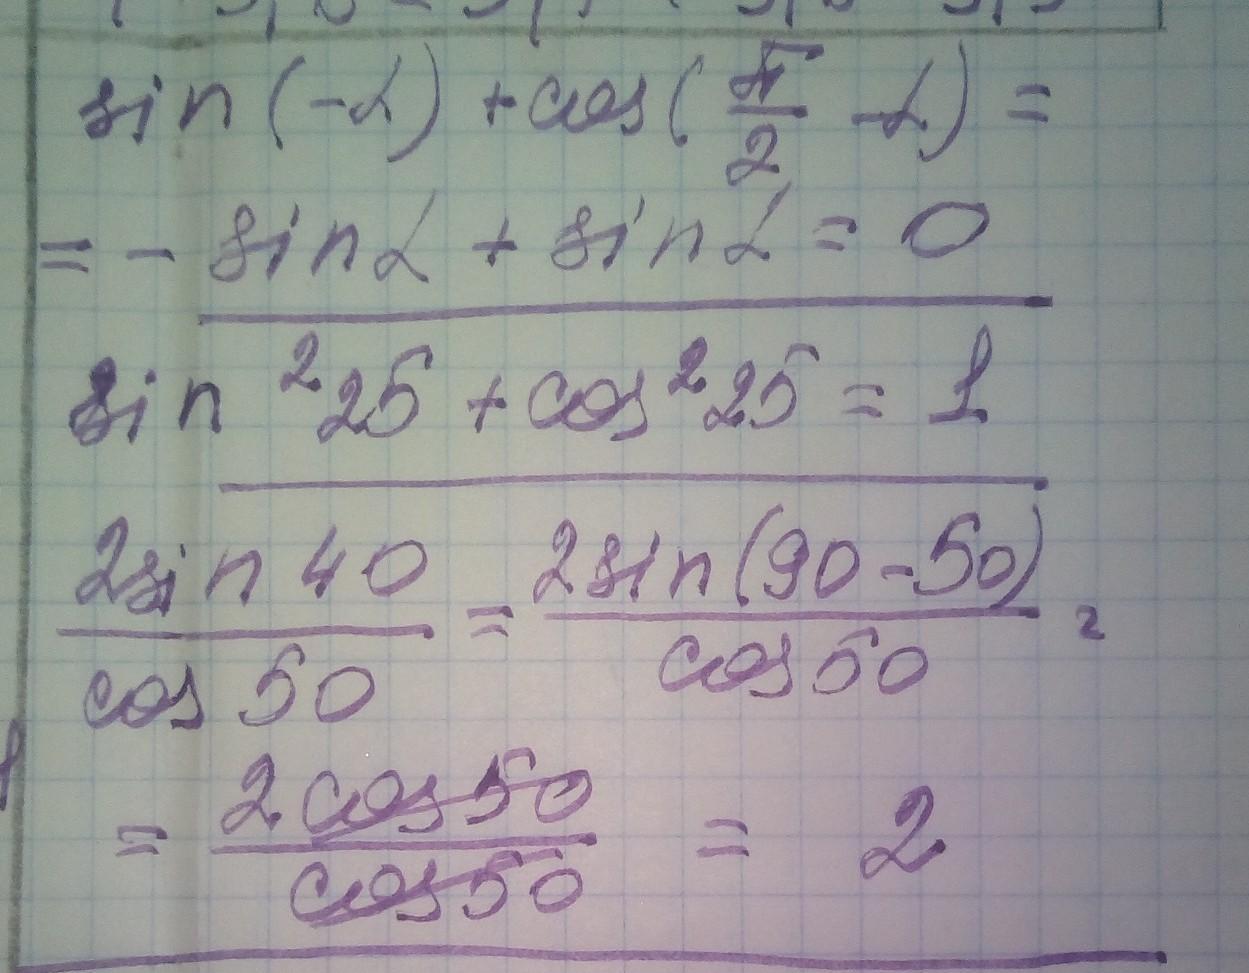 sin(-α) + cos(π/2 - α) =
= - sinα + sinα = 0
sin²25 + cos²25 = 1
2sin40/cos50 = 2sin(90-50)/cos50 =
= 2cos50/cos50 = 2